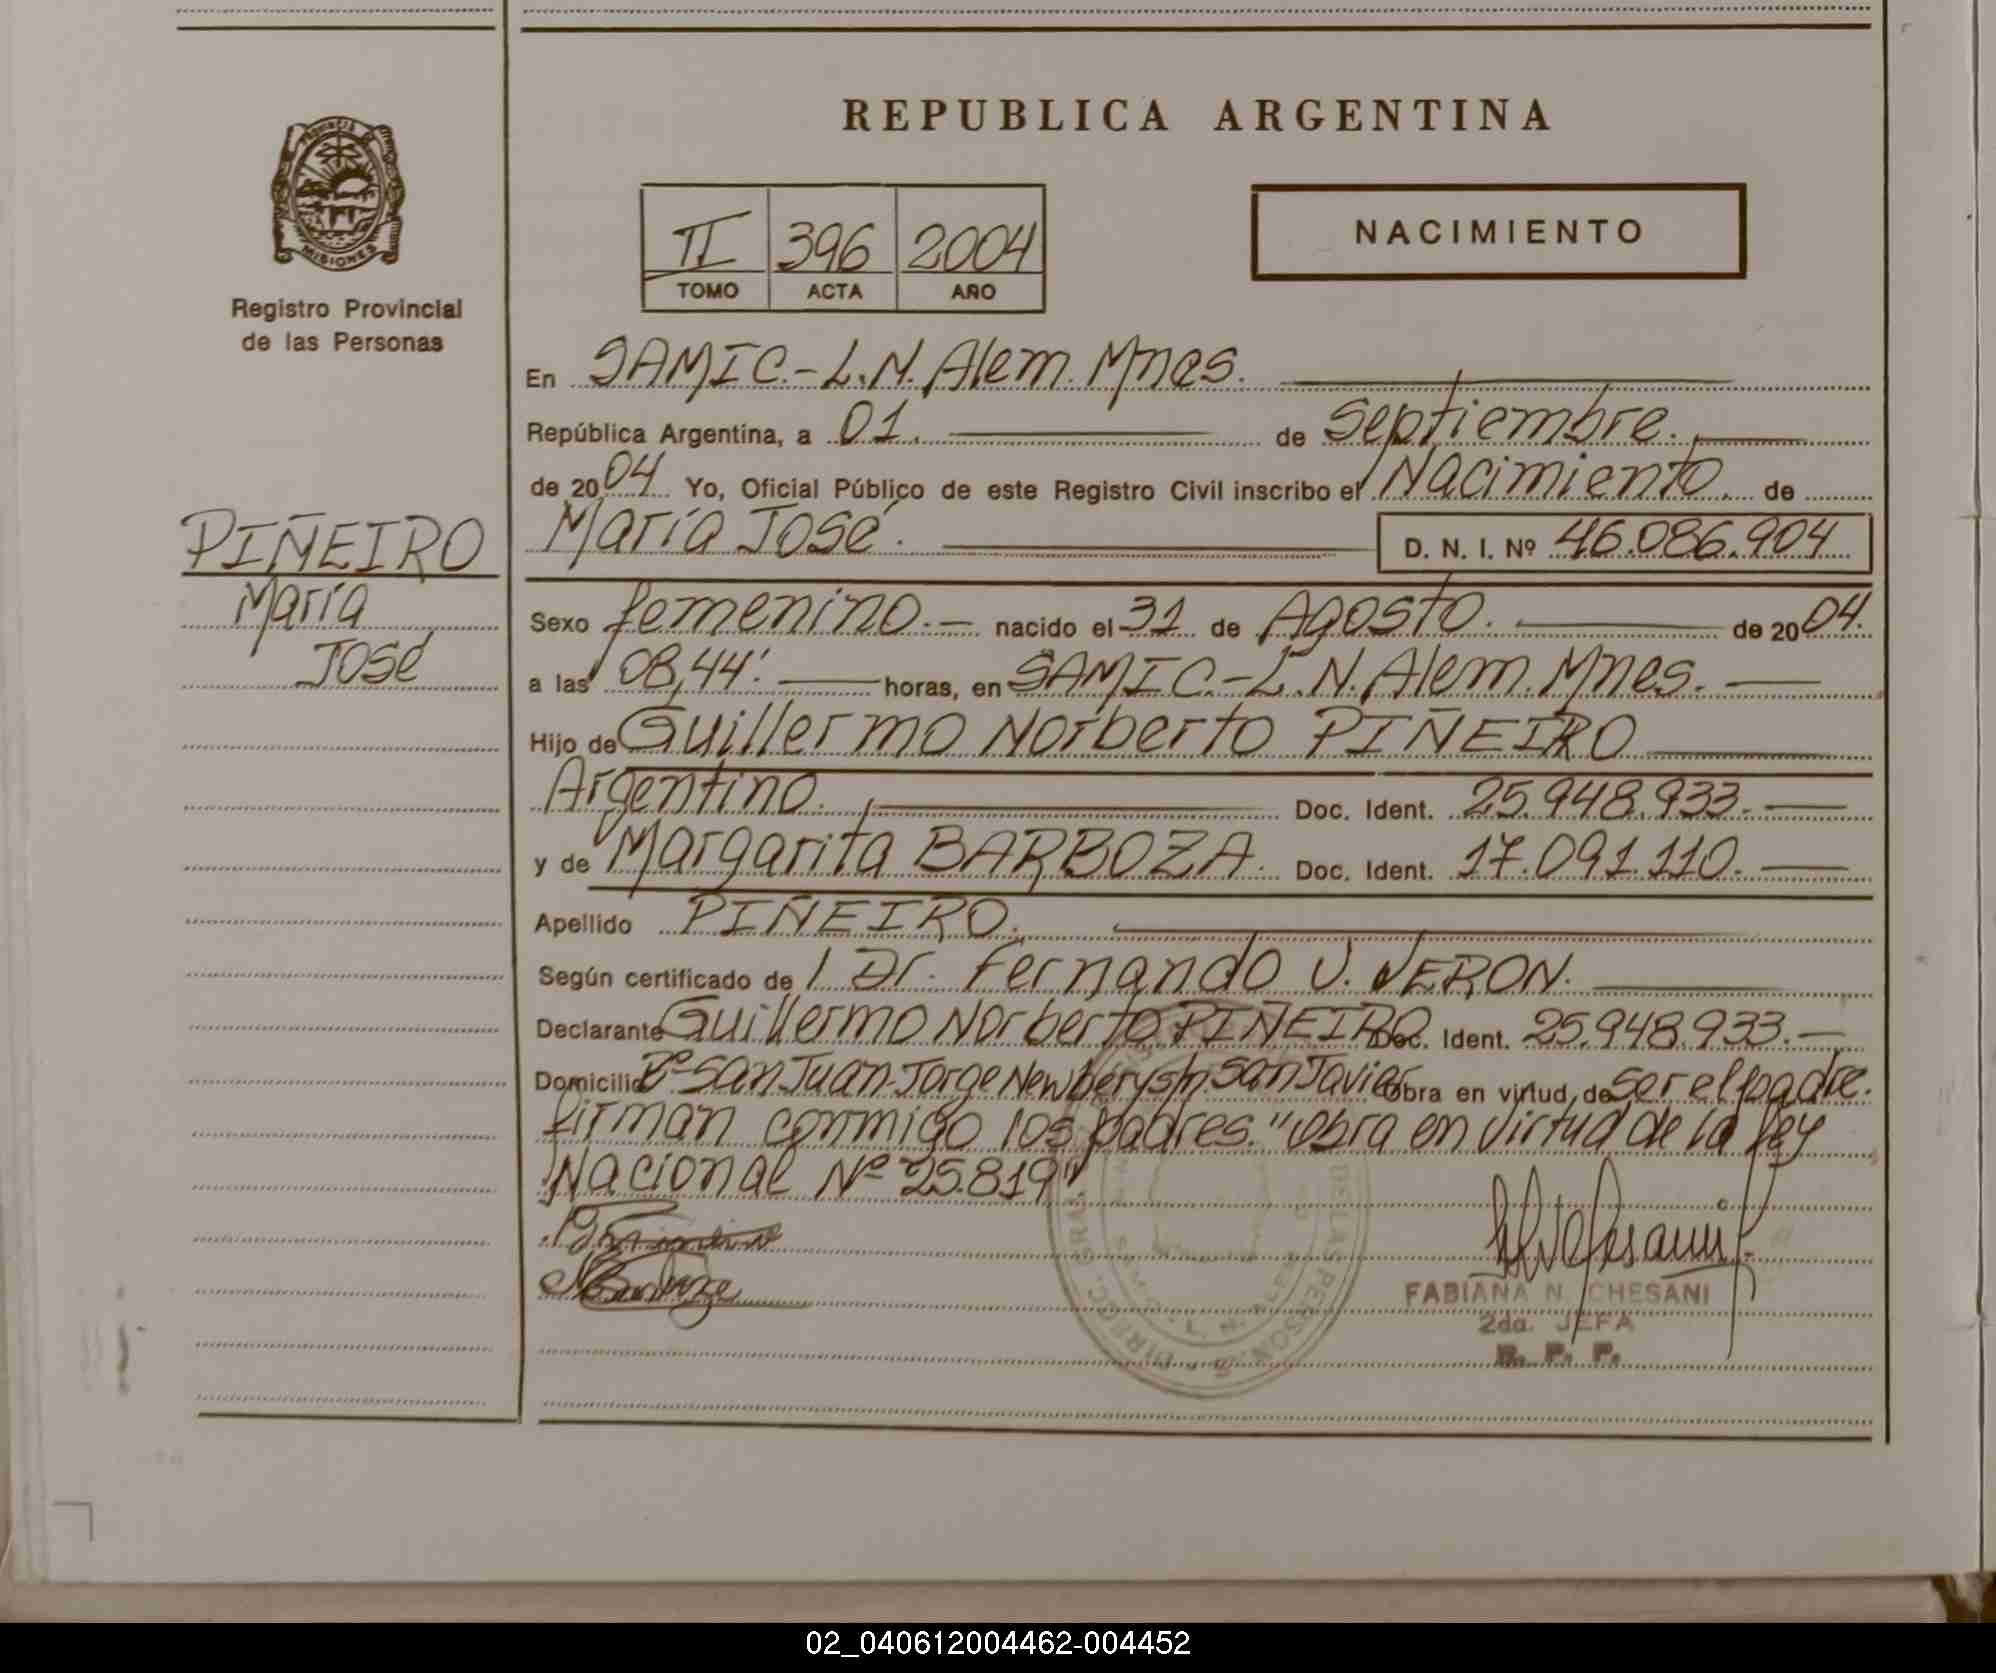 REPUBLICA ARGENTINA
PROVINCIA
MISIONES
Registro Provincial
de las Personas
II 396 2004
TOMO ACTA AÑO
NACIMIENTO
En SAMIC.-L.N. Alem. Mnes.
República Argentina, a 01. de Septiembre.
de 2004 Yo, Oficial Público de este Registro Civil inscribo el Nacimiento. de
María José. D. N. I. Nº 46.086.904
PIÑEIRO
María
José
Sexo femenino.- nacido el 31 de Agosto. de 2004.
a las 08,44'. horas, en SAMIC.-L.N. Alem. Mnes.
Hijo de Guillermo Norberto PIÑEIRO
Argentino. Doc. Ident. 25.948.933.
y de Margarita BARBOZA. Doc. Ident. 17.091.110.
Apellido PIÑEIRO.
Según certificado de Dr. Fernando V. VERON.
Declarante Guillermo Norberto PIÑEIRO Doc. Ident. 25.948.933.
Domicilio Bº San Juan-Jorge Newbery s/n. San Javier Obra en virtud de ser el padre.
firman conmigo los padres. "Obra en virtud de la ley
Nacional Nº 25.819"
FABIANA N. CHESANI
2da. JEFA
R. P. P.
02_040612004462-004452